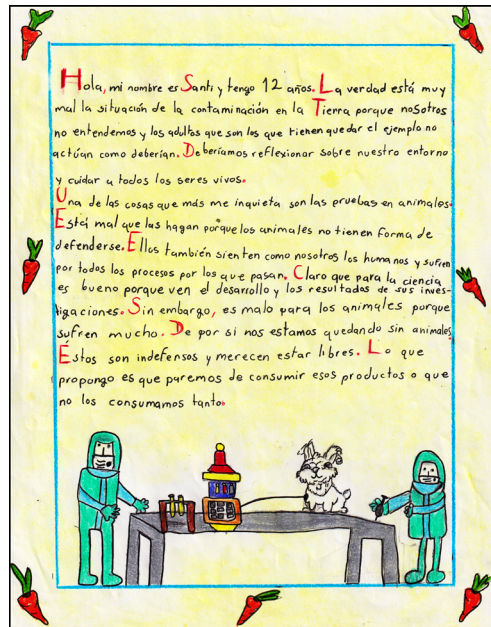 Hola, mi nombre es Santi y tengo 12 años. La verdad está muy
mal la situación de la contaminación en la Tierra porque nosotros
no entendemos y los adultos que son los que tienen que dar el ejemplo no
actúan como deberían. Deberíamos reflexionar sobre nuestro entorno
y cuidar a todos los seres vivos.
Una de las cosas que más me inquieta son las pruebas en animales.
Está mal que las hagan porque los animales no tienen forma de
defenderse. Ellos también sienten como nosotros los humanos y sufren
por todos los procesos por los que pasan. Claro que para la ciencia
es bueno porque ven el desarrollo y los resultados de sus inves-
tigaciones. Sin embargo, es malo para los animales porque
sufren mucho. De por si nos estamos quedando sin animales.
Éstos son indefensos y merecen estar libres. Lo que
propongo es que paremos de consumir esos productos o que
no los consumamos tanto.